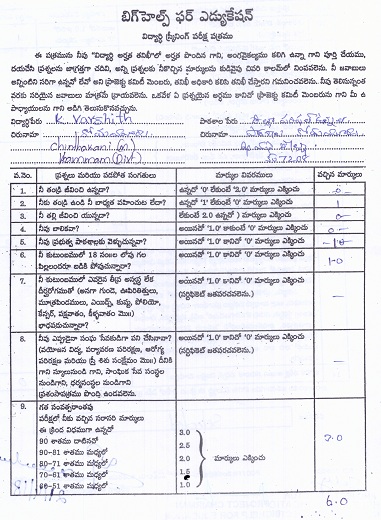 బిగ్‌హెల్ప్ ఫర్ ఎడ్యుకేషన్
విద్యార్థి స్క్రీనింగ్ పరీక్ష పత్రము
ఈ పత్రమును నీవు "విద్యార్థి అర్హత తనిఖీ"లో అర్హత పొందిన గాని, అంగవైకల్యము కలిగి ఉన్నా గాని పూర్తి చేయుము,
దయచేసి ప్రశ్నలను జాగ్రత్తగా చదివి, అన్ని ప్రశ్నలకు నీకొచ్చిన మార్కులను కుడివైపు చివరి కాలమ్‌లో నింపవలెను. నీ జవాబులు
అన్నింటిని సరిగా ఉన్నవో లేవో అని ప్రాజెక్టు కమిటీ మెంబరు, తనిఖీ అధికారి కలసి తనిఖీ చేస్తారని గమనించవలెను. నీవు తెలిసినంత
వరకు సరియైన జవాబులు మాత్రమే వ్రాయవలెను. ఒకవేళ ఏ ప్రశ్నయైన అర్థము కానిచో ప్రాజెక్టు కమిటీ మెంబరును గాని మీ ఉ
పాధ్యాయులను గాని అడిగి తెలుసుకొనవచ్చును.
విద్యార్థిపేరు K. Varshith పాఠశాల పేరు
చిరునామా చిరునామా
chinthakani (m)
Khammam (Dist) 507208
వ.నెం. ప్రశ్నలు మరియు పడపోత సంగతులు మార్కుల వివరములు వచ్చిన మార్కులు
1. నీ తండ్రి జీవించి ఉన్నాడా? ఉన్నచో '0' లేకుంటే '2.0' మార్కులు ఎక్కించు 0
2. నీకు తండ్రి ఉండి నీ బాధ్యత వహించుట లేదా? ఉన్నచో '1' లేకుంటే '0' మార్కులు ఎక్కించు 1
3. నీ తల్లి జీవించి యున్నదా? లేకుంటే 2.0 ఉన్నచో ) మార్కులు ఎక్కించు 0
4. నీవు బాలికవా? అయినచో '1.0' కాకుంటే '0' మార్కులు ఎక్కించు 0
5. నీవు ప్రభుత్వ పాఠశాలకు వెళ్ళుచున్నావా? అయినచో '1.0' కానిచో '0' మార్కులు ఎక్కించు 1.0
6. నీ కుటుంబములో 18 సంఖల లోపు గల పిల్లలందరూ బడికి పోవుచున్నారా? అయినచో '1.0' కానిచో '0' మార్కులు ఎక్కించు 1.0
7. నీ కుటుంబములో ఎవరైన తీవ్ర అస్వస్థ లేక అయినచో '1.0' కానిచో '0' మార్కులు ఎక్కించు
దీర్ఘరోగముతో (అనగా గుండె, ఊపిరితిత్తులు, (సర్టిఫికెట్ జతపరచవలెను.)
మూత్రపిండములు, ఎయిడ్స్, కుష్ఠు, పోలియో,
కేన్సర్, పక్షవాతం, కీళ్ళవాతం మొ॥)
బాధపడుచున్నారా?
8. నీవు ఎప్పుడైనా సంఘ సేవకుడిగా పని చేసినావా? అయినచో '1.0' కానిచో '0' మార్కులు ఎక్కించు
(వయోజన విద్య, పర్యావరణ పరిరక్షణ, ఆరోగ్య (సర్టిఫికెట్ జతపరచవలెను.)
పరిరక్షణ మరియు స్త్రీ శిశు సంక్షేమం మొ॥) దీనికి
గాను స్కూలునుండి గాని, సాంఘిక సేవ సంస్థల
నుండిగాని, ధర్మసంస్థల నుండిగాని
ప్రశంసాపత్రము పొంది ఉండవలెను.
9. గత సంవత్సరాంతపు
పరీక్షలో నీకు వచ్చిన సరాసరి మార్కులు
ఈ క్రింద విధముగా ఉన్నచో
90 శాతము దాటినచో 3.0
90-81 శాతము మధ్యలో 2.5
80-71 శాతము మధ్యలో 2.0 మార్కులు ఎక్కించు 3.0
70-61 శాతము మధ్యలో 1.5
60-51 శాతము మధ్యలో 1.0
6.0